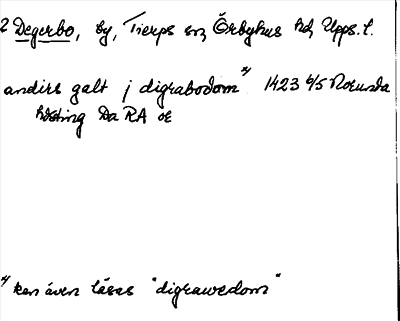 2 Degerbo, by, Tierps sn, Örbyhus hd, Upps. l.
andirs galt j digrabodom *) 1423 6/5 Norunda
hästing Da RA or
*) kan även läsas "digrawedom"